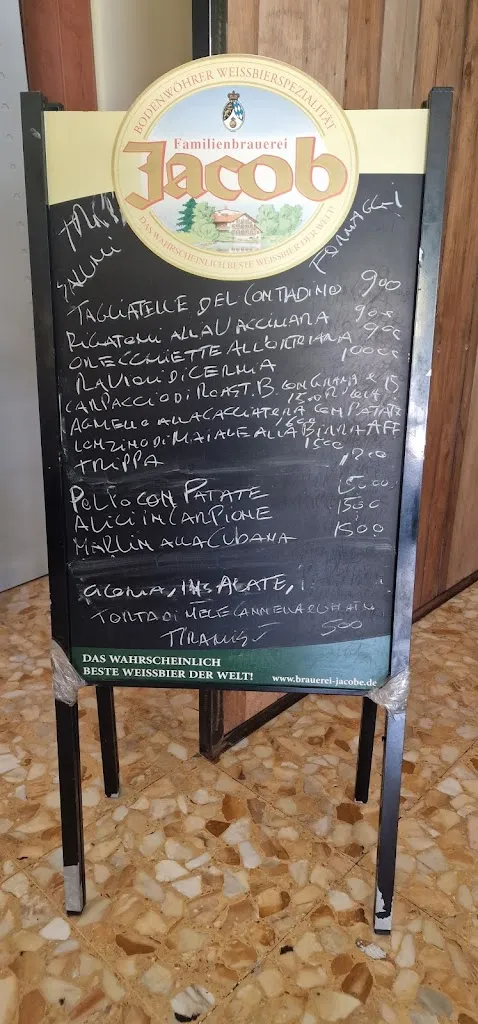 BODENWÖHRER WEISSBIERSPEZIALITÄT
Familienbrauerei
Jacob
DAS WAHRSCHEINLICH BESTE WEISSBIER DER WELT!
SALUMI
FORMAGGI
TAGLIATELLE DEL CONTADINO 900
RIGATONI ALLA VACCINARA 900
ORECCHIETTE ALL'ORTOLANA 900
RAVIOLI DI CERNIA 1000
CARPACCIO DI ROAST.B. CON GRANA E
1500
AGNELLO ALLA CACCIATORA CON PATATE
1600
LONZINO DI MAIALE ALLA BIRRA AFF
1500
TRIPPA 1200
POLPO CON PATATE 1500
ALICI IN CARPIONE 1500
MARLIN ALLA CUBANA 1500
CICORIA, INSALATE,
TORTA DI MELE CANNELLA
TIRAMISÙ 500
DAS WAHRSCHEINLICH
BESTE WEISSBIER DER WELT! www.brauerei-jacobe.de